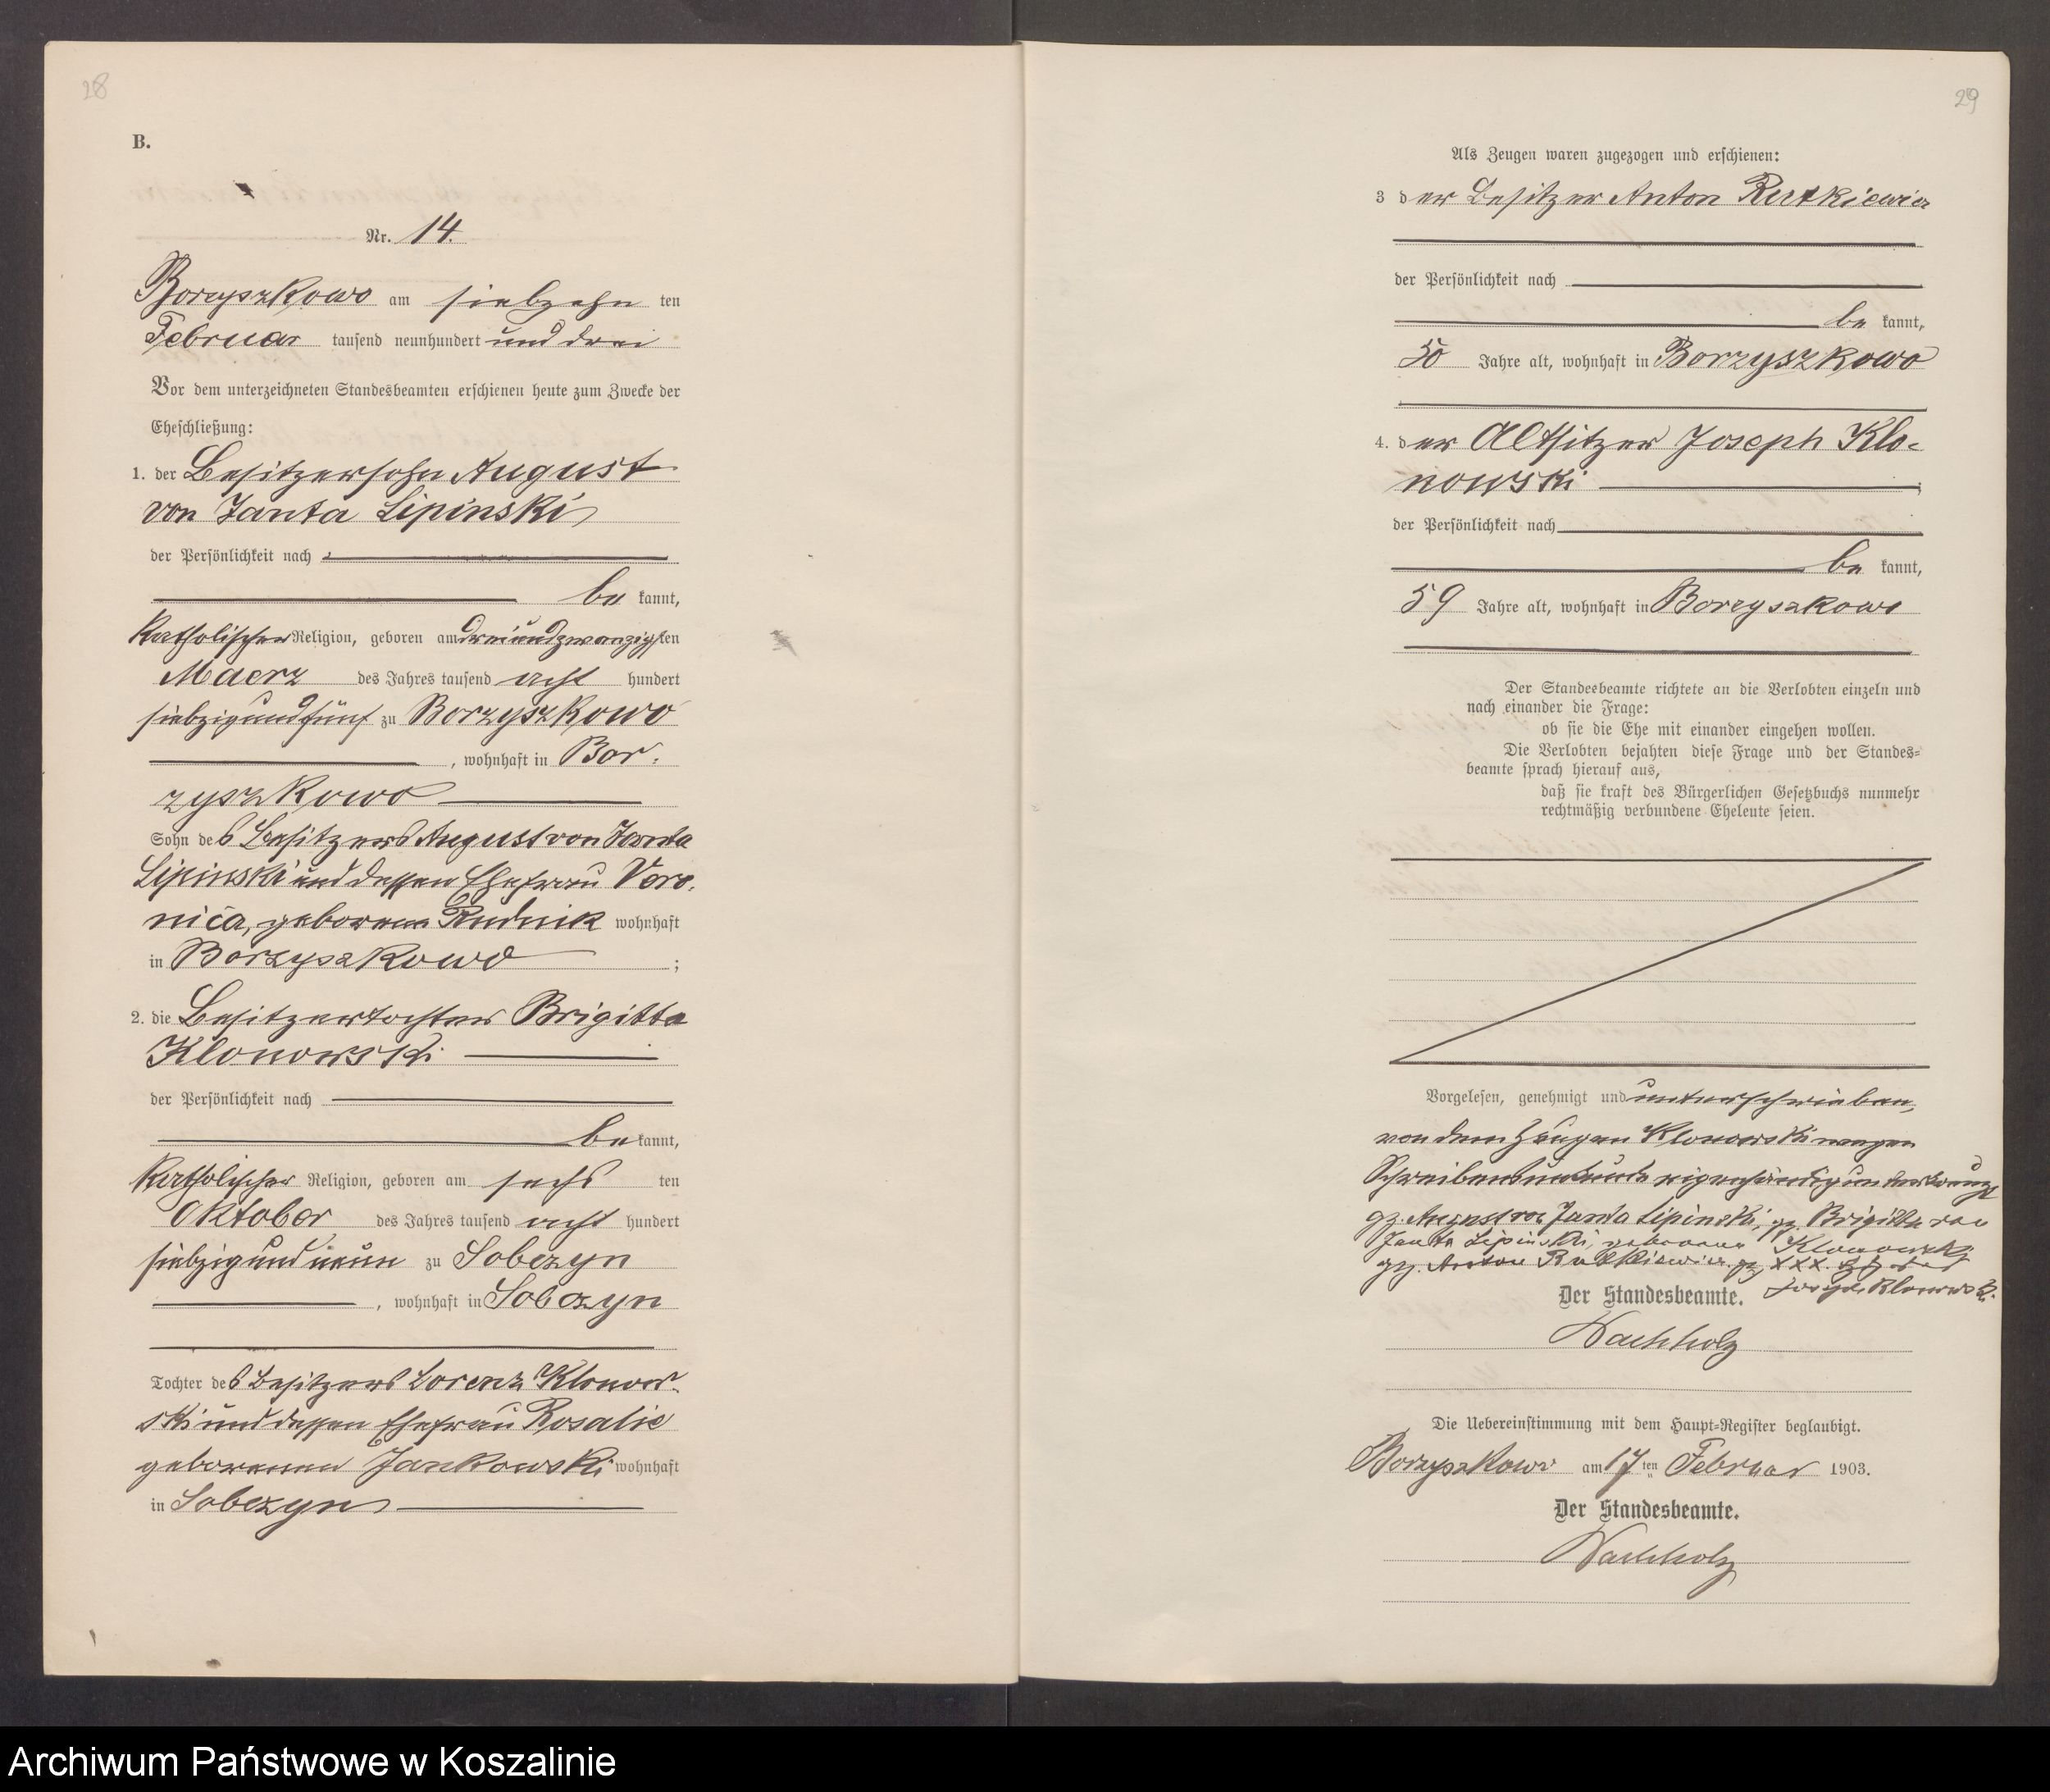 28
B.
Nr. 14.
Borzyszkowo am siebzehn ten
Februar tausend neunhundert und drei
Vor dem unterzeichneten Standesbeamten erschienen heute zum Zwecke der
Eheschließung:
1. der Besitzersohn August
von Janta Lipinski
der Persönlichkeit nach
be kannt,
katholischer Religion, geboren am dreiundzwanzigsten
Maerz des Jahres tausend acht hundert
siebzigundfünf zu Borzyszkowo
, wohnhaft in Bor-
zyszkowo
Sohn des Besitzers August von Janta
Lipinski und dessen Ehefrau Vero-
nica, geborenen Rudnik wohnhaft
in Borzyszkowo ;
2. die Besitzertochter Brigitta
Klonowski
der Persönlichkeit nach
be kannt,
katholischer Religion, geboren am sechs ten
Oktober des Jahres tausend acht hundert
siebzigundneun zu Sobczyn
, wohnhaft in Sobczyn
Tochter des Besitzers Lorenz Klonow-
ski und dessen Ehefrau Rosalie
geborenen Jankowski wohnhaft
in Sobczyn
29
Als Zeugen waren zugezogen und erschienen:
3 der Besitzer Anton Rutkiewicz
der Persönlichkeit nach
be kannt,
50 Jahre alt, wohnhaft in Borzyszkowo
4. der Altsitzer Joseph Klo-
nowski ;
der Persönlichkeit nach
be kannt,
59 Jahre alt, wohnhaft in Borzyszkowo
Der Standesbeamte richtete an die Verlobten einzeln und
nach einander die Frage:
ob sie die Ehe mit einander eingehen wollen.
Die Verlobten bejahten diese Frage und der Standes-
beamte sprach hierauf aus,
daß sie kraft des Bürgerlichen Gesetzbuchs nunmehr
rechtmäßig verbundene Eheleute seien.
Vorgelesen, genehmigt und unterschrieben,
von dem Zeugen Klonowski wegen
Schreibensunkunde eigenhändig unterkreuzt
gz. August von Janta Lipinski, gz. Brigitta von
Janta Lipinski, geborene Klonowski
gz. Anton Rutkiewicz. gz. XXX.
Joseph Klonowski.
Der Standesbeamte.
Wachholz
Die Uebereinstimmung mit dem Haupt-Register beglaubigt.
Borzyszkowo am 17ten Februar 1903.
Der Standesbeamte.
Wachholz
Archiwum Państwowe w Koszalinie